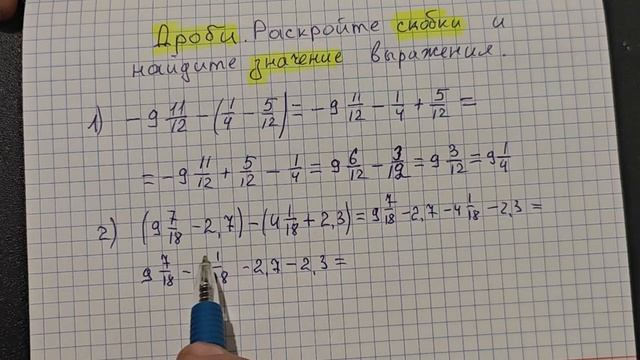 Дроби. Раскройте скобки и
найдите значение выражения.
1) -9 11/12 - (1/4 - 5/12) = -9 11/12 - 1/4 + 5/12 =
= -9 11/12 + 5/12 - 1/4 = 9 6/12 - 3/12 = 9 3/12 = 9 1/4
2) (9 7/18 - 2,7) - (4 1/18 + 2,3) = 9 7/18 - 2,7 - 4 1/18 - 2,3 =
9 7/18 - 1/18 - 2,7 - 2,3 =